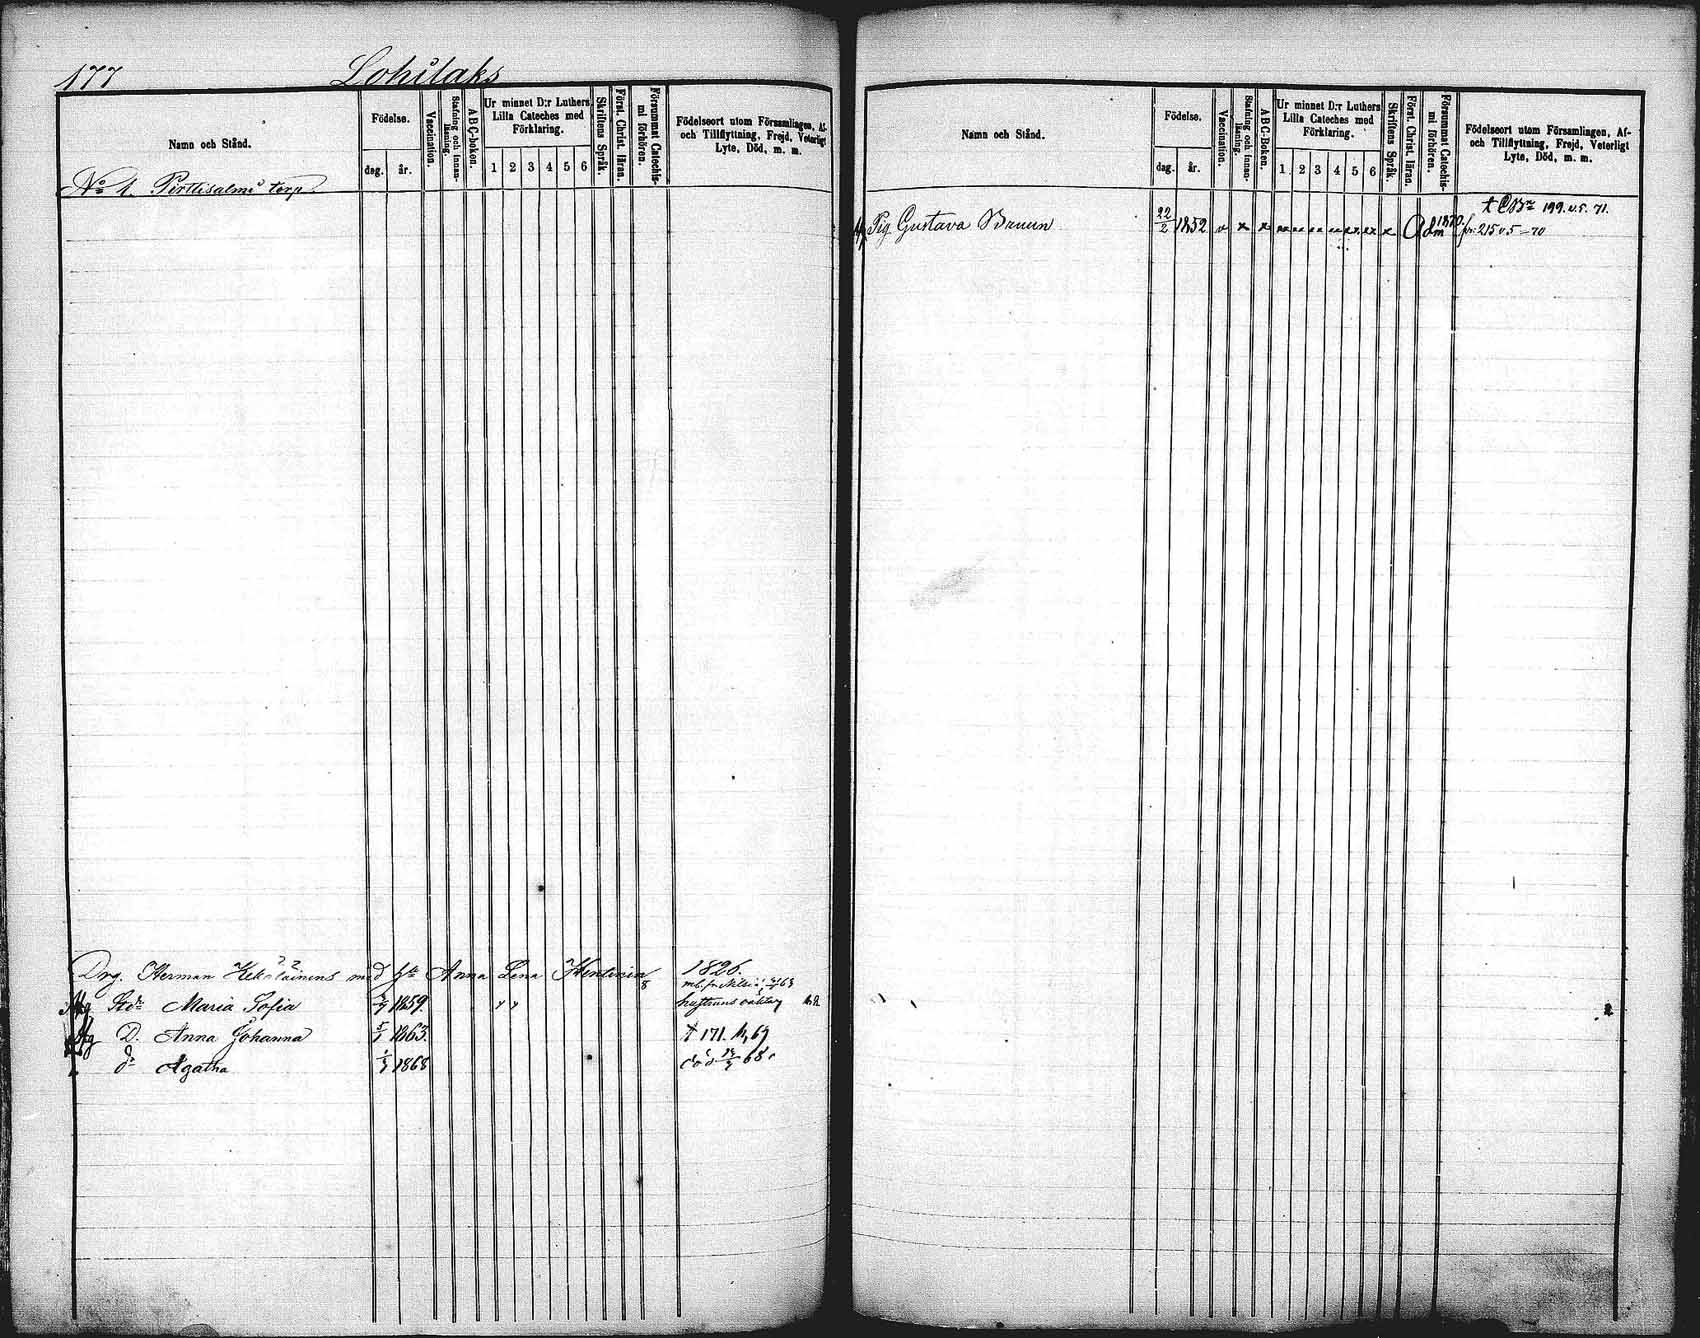 177 Lohilaks
Namn och Stånd.
Födelse.
dag. år.
Vaccination.
Stafning och innanläsning.
ABC-boken.
Ur minnet D:r Luthers Lilla Cateches med Förklaring.
1 2 3 4 5 6
Skriftens Språk.
Först. Christ. läran.
Försummat Catechismi förhören.
Födelseort utom Församlingen, Af- och Tillflyttning, Frejd, Veterligt Lyte, Död, m. m.
No 1. Perttisalmi torp
Drg. Herman med h. Anna Lena 1826.
Maria Sofia 1859.
D. Anna Johanna 5/ 1863. † 171. 69
d. Agatha 1868 död 68.
Namn och Stånd.
Födelse.
dag. år.
Vaccination.
Stafning och innanläsning.
ABC-Boken.
Ur minnet D:r Luthers Lilla Cateches med Förklaring.
1. 2 3 4 5 6
Skriftens Språk.
Först. Christ. läran.
Försummat Catechismi förhören.
Födelseort utom Församlingen, Af- och Tillflyttning, Frejd, Veterligt Lyte, Död, m. m.
199. v. 5. 71.
Pig. Gustava Bruun 22/2 1852 v x x x Adm 1870 fr. 215 v 5 -70